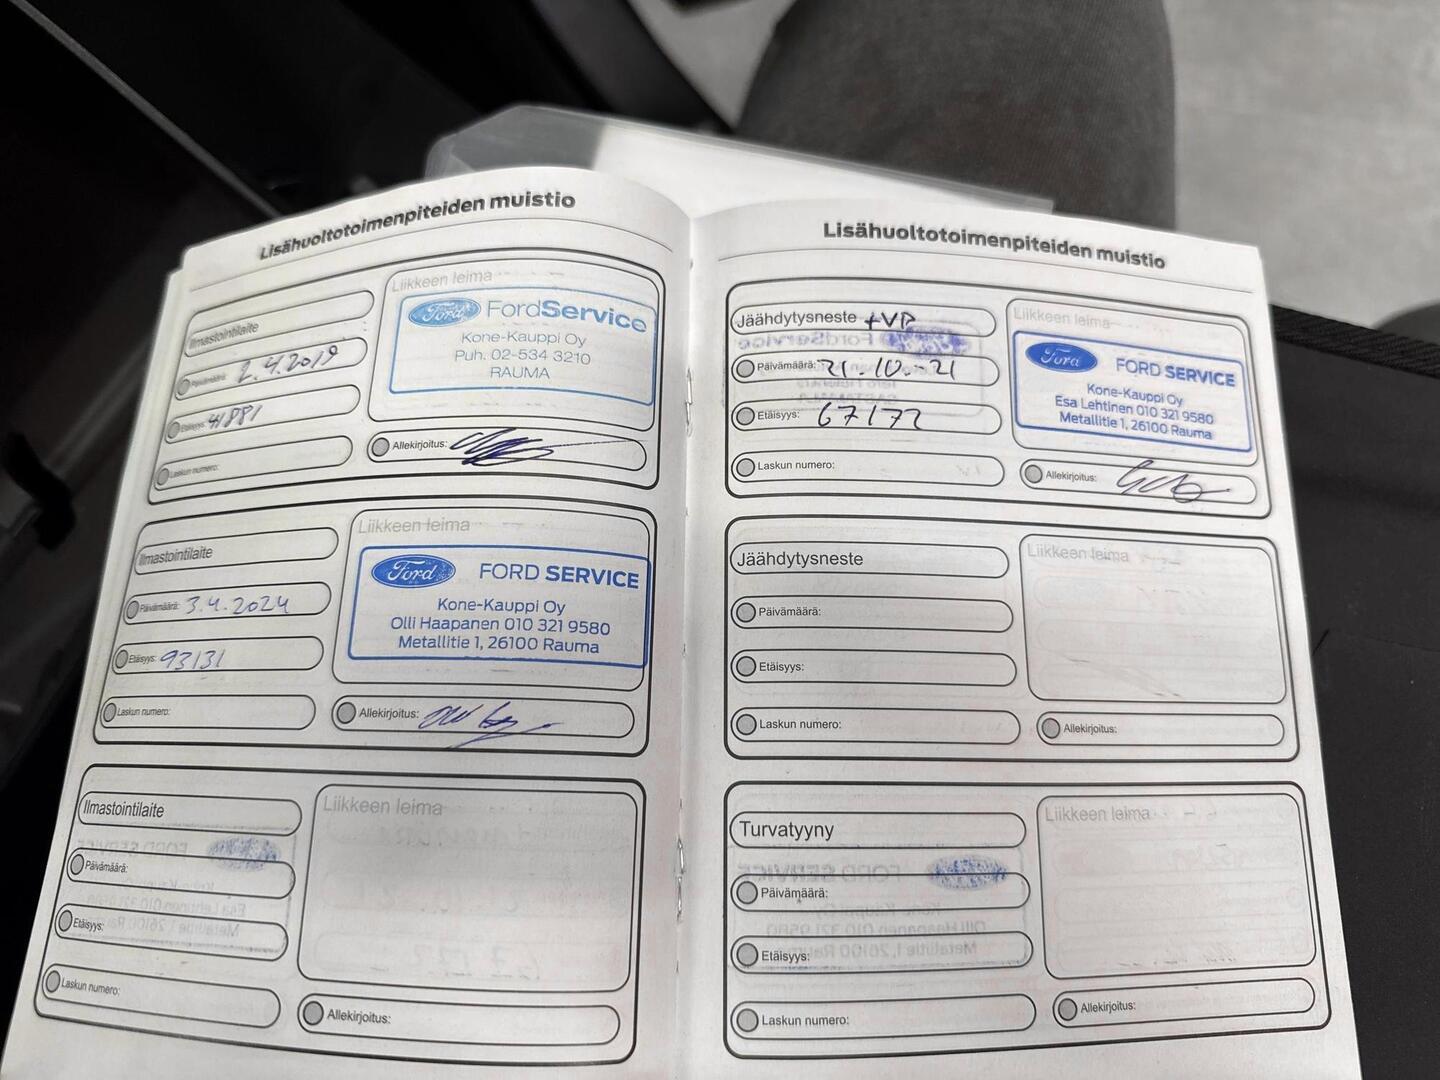 Lisähuoltotoimenpiteiden muistio
Ilmastointilaite
Päivämäärä: 2.4.2019
Etäisyys: 41881
Laskun numero:
Liikkeen leima
Ford FordService
Kone-Kauppi Oy
Puh. 02-534 3210
RAUMA
Allekirjoitus:
Ilmastointilaite
Päivämäärä: 3.4.2024
Etäisyys: 93131
Laskun numero:
Liikkeen leima
Ford FORD SERVICE
Kone-Kauppi Oy
Olli Haapanen 010 321 9580
Metallitie 1, 26100 Rauma
Allekirjoitus:
Ilmastointilaite
Päivämäärä:
Etäisyys:
Laskun numero:
Liikkeen leima
Allekirjoitus:
Lisähuoltotoimenpiteiden muistio
Jäähdytysneste +VP
Päivämäärä: 21.10.-21
Etäisyys: 67172
Laskun numero:
Liikkeen leima
Ford FORD SERVICE
Kone-Kauppi Oy
Esa Lehtinen 010 321 9580
Metallitie 1, 26100 Rauma
Allekirjoitus:
Jäähdytysneste
Päivämäärä:
Etäisyys:
Laskun numero:
Liikkeen leima
Allekirjoitus:
Turvatyyny
Päivämäärä:
Etäisyys:
Laskun numero:
Liikkeen leima
Allekirjoitus: